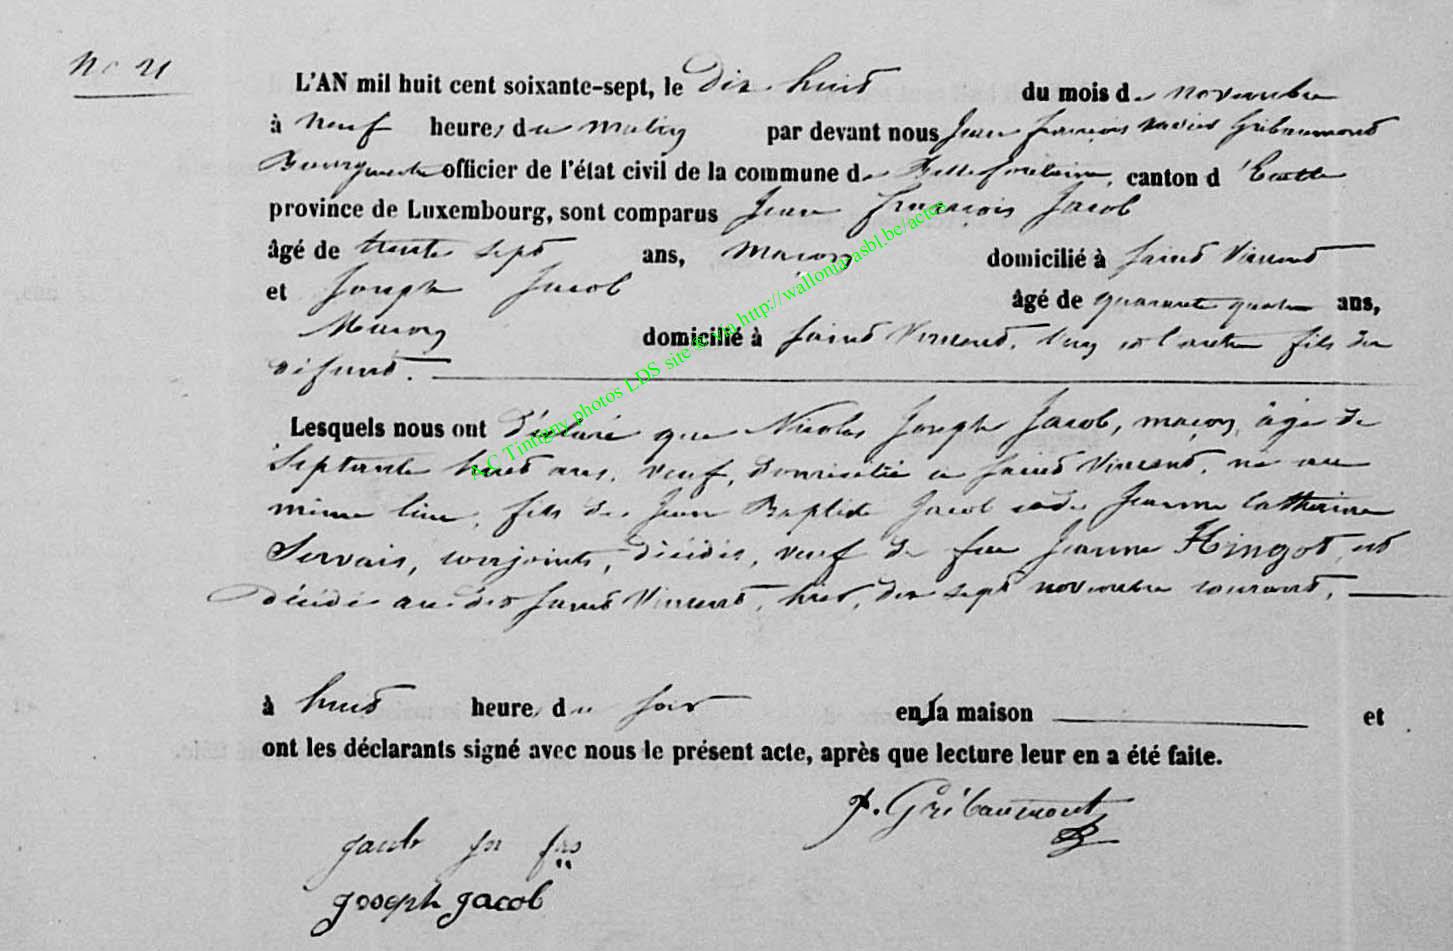 No 21
L'AN mil huit cent soixante-sept, le Dix huit du mois de novembre
à neuf heures du matin par devant nous Jean françois xavier Gribaumont
Bourgmestre officier de l'état civil de la commune de Bellefontaine, canton d'Etalle
province de Luxembourg, sont comparus Jean françois Jacob
âgé de trente sept ans, Maçon domicilié à saint Vincent
et Joseph Jacob âgé de quarante quatre ans,
Maçon domicilié à saint Vincent, l'un et l'autre fils du
défunt.
Lesquels nous ont déclaré que Nicolas Joseph Jacob, maçon, âgé de
Septante huit ans, veuf, domicilié à saint Vincent, né au
même lieu, fils de Jean Baptiste Jacob et de Jeanne Catherine
Servais, conjoints, décédés, veuf de feu Jeanne Hingot, est
décédé au dit saint Vincent, hier, dix sept novembre courant,
à huit heures du soir en sa maison et
ont les déclarants signé avec nous le présent acte, après que lecture leur en a été faite.
Gribaumont
Jacob jn frs
joseph jacob
A.C Tintigny photos LDS site via http://wallonia-asbl.be/actes